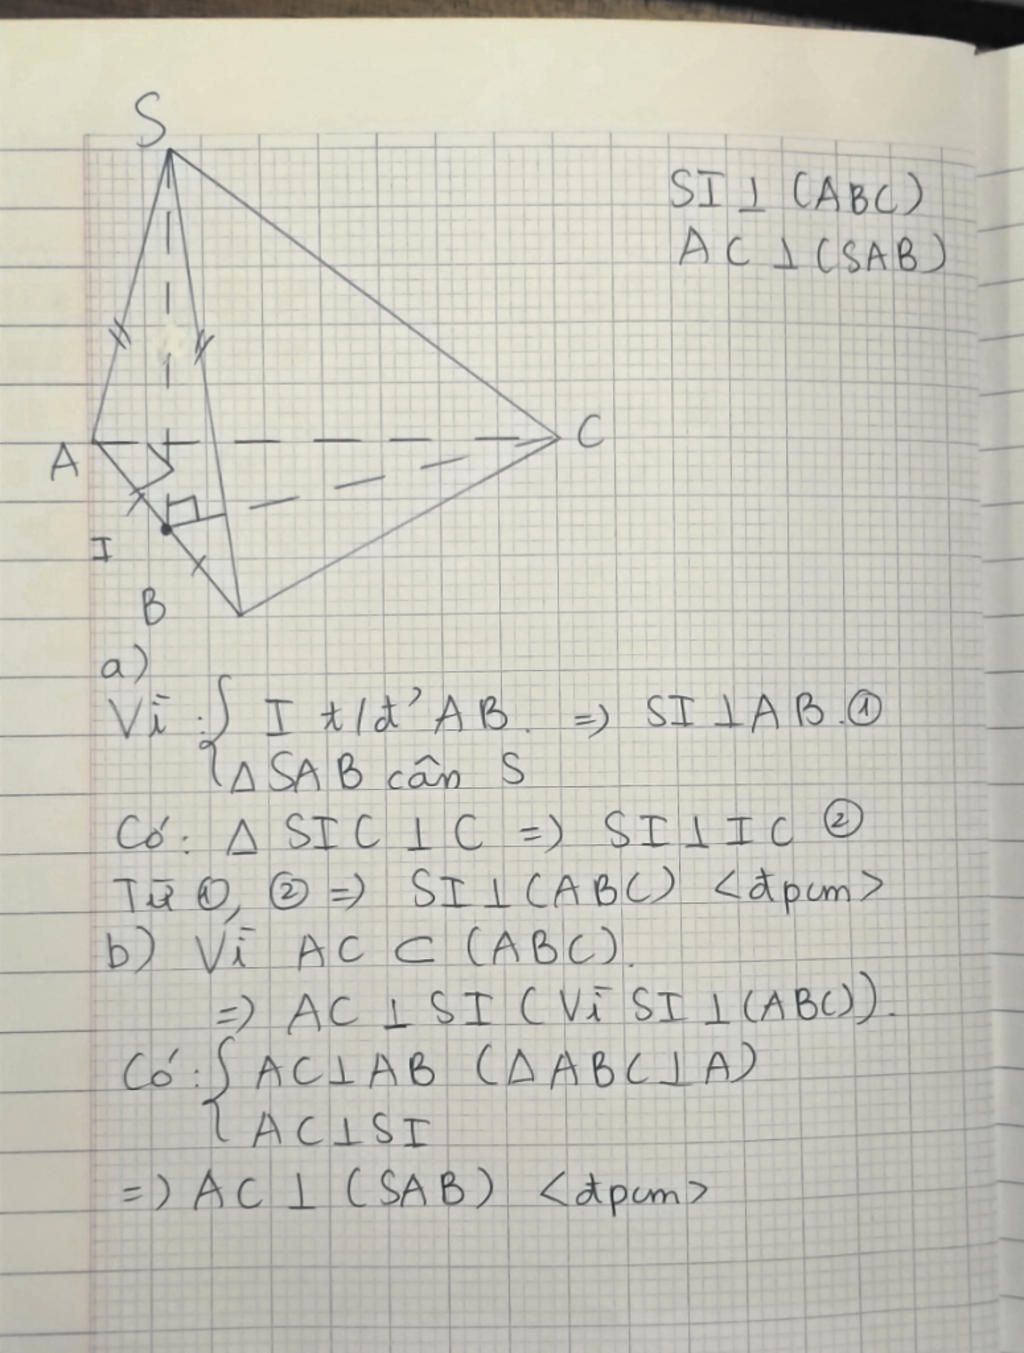 S
SI ⊥ (ABC)
AC ⊥ (SAB)
A
C
I
B
a)
Vì : { I t/đ' AB. => SI ⊥ AB. ①
Δ SAB cân S
Có: Δ SIC ⊥ C => SI ⊥ IC ②
Từ ①, ② => SI ⊥ (ABC) <đpcm>
b) Vì AC ⊂ (ABC).
=> AC ⊥ SI (Vì SI ⊥ (ABC)).
Có : { AC ⊥ AB (Δ ABC ⊥ A)
AC ⊥ SI
=> AC ⊥ (SAB) <đpcm>